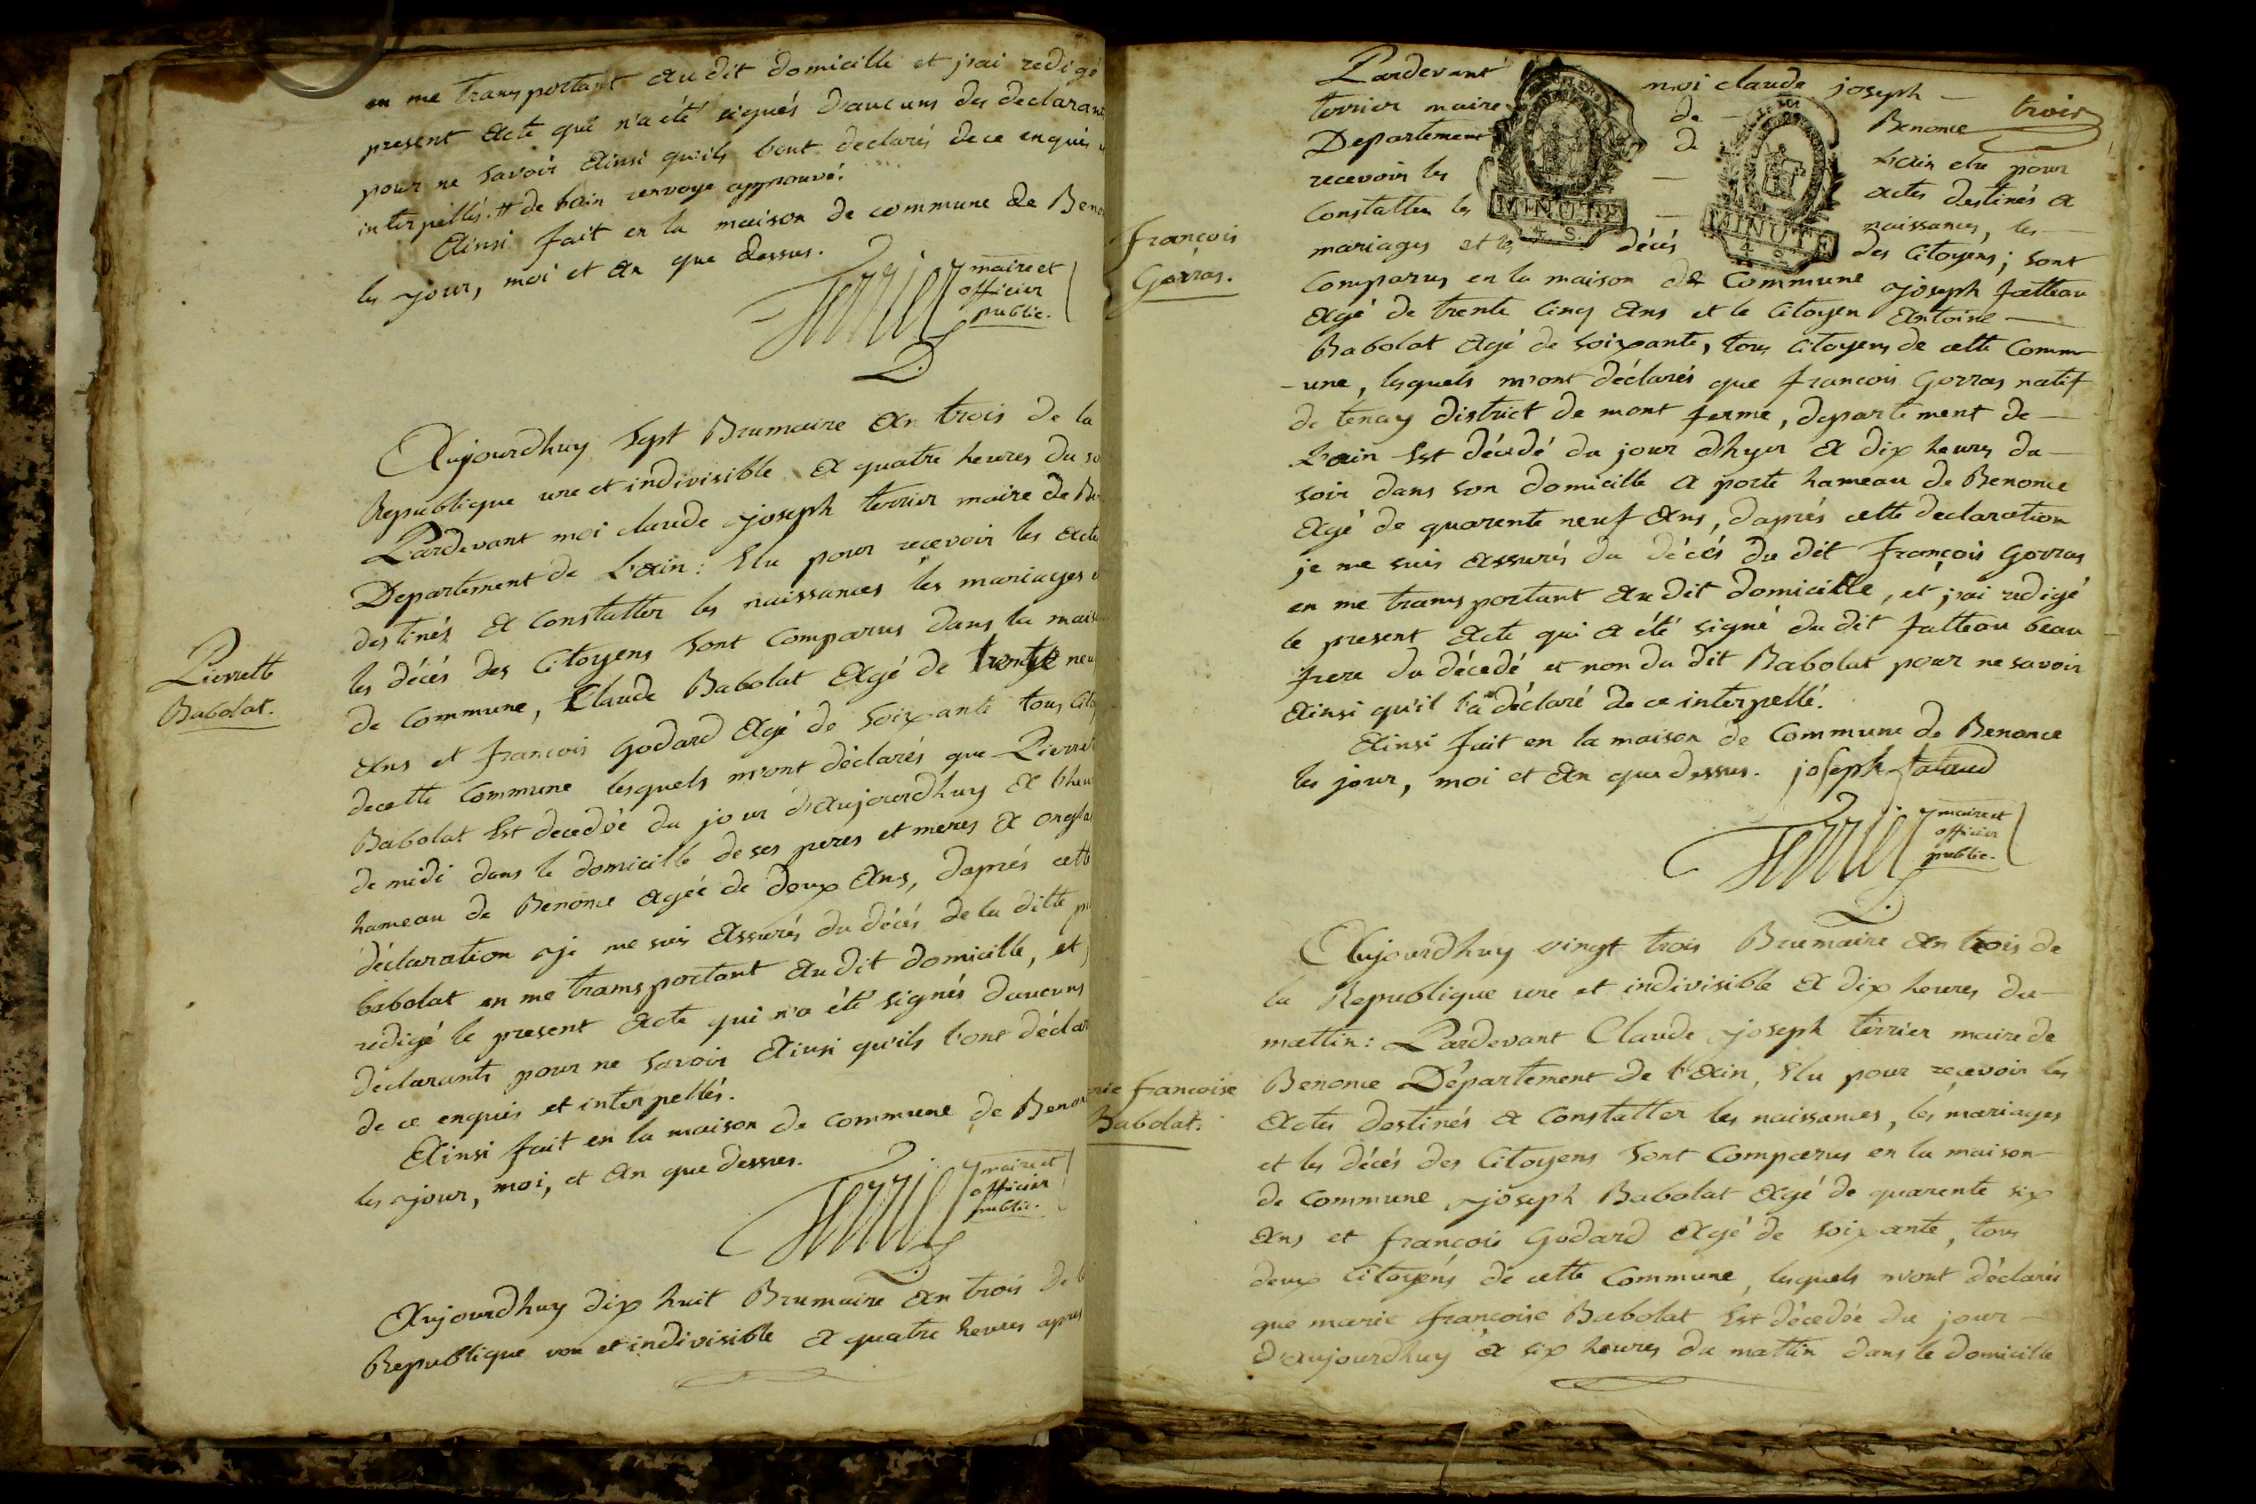 en me transportant au dit domicille et j'ai redigé
present acte qui n'a été signés d'aucuns des declarans
pour ne savoir ainsi qu'ils l'ont declarés de ce enquis
interpellés. # de l'ain renvoye approuvé.
Ainsi fait en la maison de commune de Beno
les jour, moi et an que dessus.
Terrier maire et
officier
public.
Pierrette
Babolat.
Aujourdhuy sept Brumaire an trois de la
Republique une et indivisible a quatre heures du so
Pardevant moi claude joseph terrier maire de Be
Departement de L'ain: Elu pour recevoir les acte
destinés a Constatter les naissances les mariages
les décés des Citoyens sont comparus dans la mais
de Commune, Claude Babolat agé de trente neu
ans et francois Godard agé de soixante tous Cito
decette Commune lesquels m'ont déclarés que Pierret
Babolat Est decedée du jour d'aujourdhuy a l'heu
de midi dans le domicille de ses peres et meres a
hameau de Benonce agée de deux ans, daprés cette
déclaration je me suis assurés du décés de la ditte
babolat en me transportant au dit domicille, et j
redigé le present acte qui n'a été signés d'aucuns
déclarants pour ne savoir ainsi qu'ils l'ont déclar
de ce enquis et interpellés.
Ainsi fait en la maison de commune de Benon
les jour, moi, et an que dessus.
Terrier maire et
officier
public.
Aujourdhuy dix huit Brumaire an trois de l
Republique une et indivisible a quatre heures apres
trois
Pardevant moi claude joseph
terrier maire de Benonce
Departement de L'ain elu pour
recevoir les actes destinés a
Constatter les naissances, les
mariages et les décés des Citoyens; sont
MINUTE
4. S.
MINUTE
4. S.
François
Gorras.
Comparus en la maison de Commune joseph fatteau
agé de trente cinq ans et le Citoyen antoine
Babolat agé de soixante, tous Citoyens de cette Comm
-une, lesquels m'ont déclarés que francois Gorras natif
de tenay district de mont ferme, departement de
L'ain Est décédé du jour d'hyer a dix heures du
soir dans son domicille a porte hameau de Benonce
agé de quarente neuf ans, daprés cette declaration
je me suis assurés du décés du dit françois Gorras
en me transportant au dit domicille, et j'ai redigé
le present acte qui a été signé du dit fatteau beau
frere du décedé et non du dit Babolat pour ne savoir
ainsi qu'il l'a déclaré de ce interpellé.
Ainsi fait en la maison de Commune de Benonce
les jour, moi et an que dessus. joseph fataud
Terrier maire et
officier
public.
Aujourdhuy vingt trois Brumaire an trois de
la Republique une et indivisible a dix heures du
mattin: Pardevant Claude joseph terrier maire de
rie francoise
Babolat.
Benonce Département de l'ain, Elu pour recevoir les
actes destinés a Constatter les naissances, les mariages
et les décés des Citoyens sont Comparus en la maison
de Commune, joseph Babolat agé de quarente six
ans et françois Godard agé de soixante, tous
deux Citoyens de cette Commune, lesquels m'ont déclarés
que marie francoise Babolat Est décedée du jour
d'aujourdhuy a six heures du mattin dans le domicille